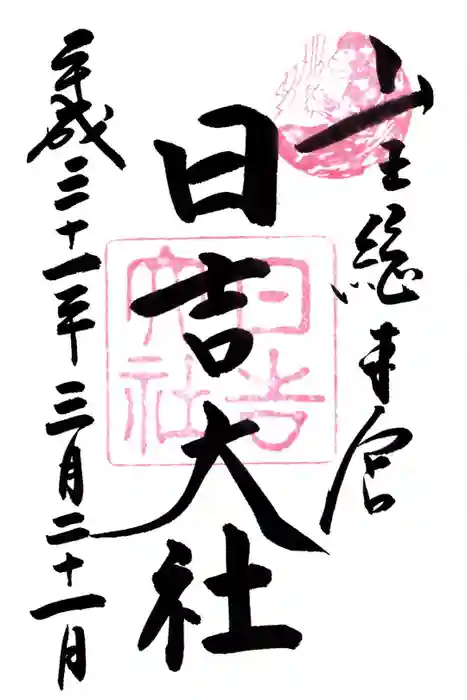 山王総本宮
日吉大社
平成三十一年三月二十一日
日吉
大社